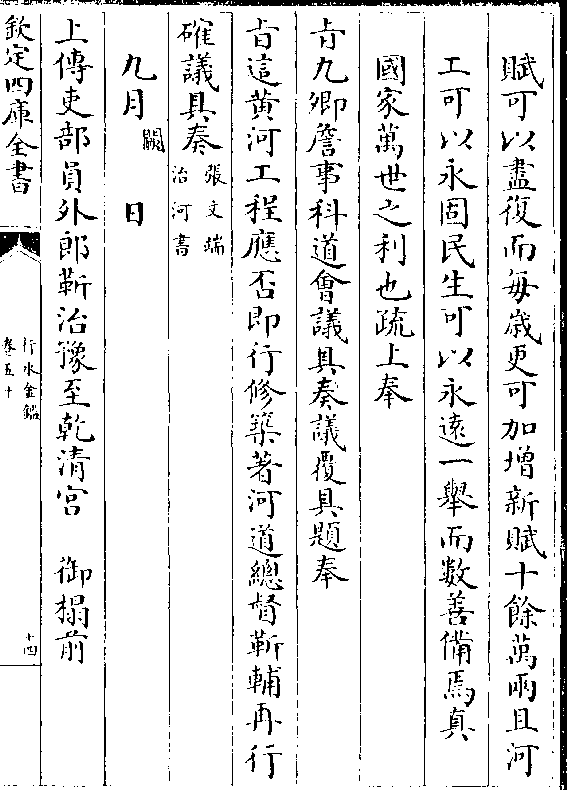 賦可以盡復而每歳更可加增新賦十餘萬兩且河
工可以永固民生可以永遠一舉而數善備焉真
國家萬世之利也疏上奉
㫖九卿詹事科道會議具奏議覆具題奉
㫖這黄河工程應否即行修築著河道總督靳輔再行
確議具奏張文端治河書
九月闕日
上傳吏部員外郎靳治豫至乾清宫 御榻前
欽定四庫全書
行水金鑑
卷五十
十四